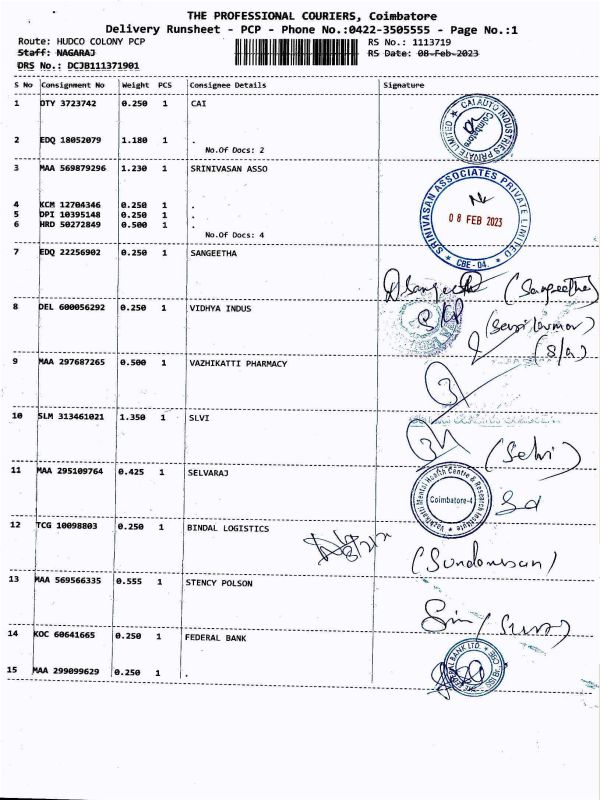 THE PROFESSIONAL COURIERS, Coimbatore
Delivery Runsheet - PCP - Phone No.:0422-3505555 - Page No.:1
Route: HUDCO COLONY PCP RS No.: 1113719
Staff: NAGARAJ RS Date: 08-Feb-2023
DRS No.: DCJB111371901
S No Consignment No Weight PCS Consignee Details Signature
1 OTY 3723742 0.250 1 CAI
CAI AUTO INDUSTRIES PRIVATE LIMITED
Coimbatore
2 EDQ 18052079 1.180 1 .
No.Of Docs: 2
3 MAA 569879296 1.230 1 SRINIVASAN ASSO
SRINIVASAN ASSOCIATES PRIVATE LIMITED
08 FEB 2023
CBE-04.
4 KCM 12704346 0.250 1 .
5 DPI 10395148 0.250 1 .
6 HRD 50272849 0.500 1 .
No.Of Docs: 4
7 EDQ 22256902 0.250 1 SANGEETHA
Sangeetha (Sangeetha)
8 DEL 600056292 0.250 1 VIDHYA INDUS
(S/a)
9 MAA 297687265 0.500 1 VAZHIKATTI PHARMACY
10 SLM 313461021 1.350 1 SLVI
(Selvi)
11 MAA 295109764 0.425 1 SELVARAJ
Vazhikatti Mental Health Centre & Research Institute
Coimbatore-4
12 TCG 10098803 0.250 1 BINDAL LOGISTICS
13 MAA 569566335 0.555 1 STENCY POLSON
14 KOC 60641665 0.250 1 FEDERAL BANK
BANK LTD.
15 MAA 299099629 0.250 1 .